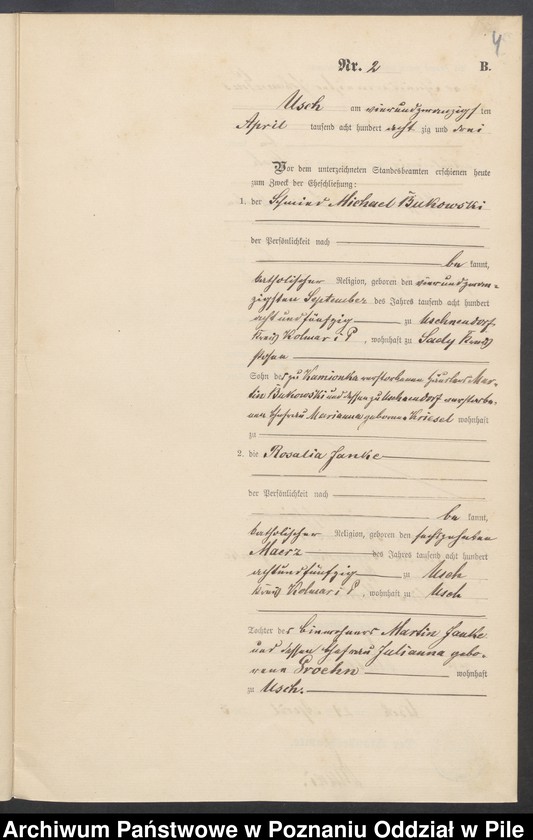 4
Nr. 2 B.
Usch am vierundzwanzigsten
April tausend acht hundert achtzig und drei
Vor dem unterzeichneten Standesbeamten erschienen heute
zum Zweck der Eheschließung:
1. der Schmied Michael Bukowski
der Persönlichkeit nach
be kannt,
katholischer Religion, geboren den vierundzwan-
zigsten September des Jahres tausend acht hundert
achtundfünfzig zu Uschneudorf
Kreis Kolmar i P, wohnhaft zu Sady Kreis
Posen
Sohn des zu Kamionka verstorbenen Häuslers Mar-
tin Bukowski und dessen zu Uschneudorf verstorbe-
nen Ehefrau Marianna geborenen Kriesel wohnhaft
zu
2. die Rosalia Janke
der Persönlichkeit nach
be kannt,
katholischer Religion, geboren den sechszehnten
Maerz des Jahres tausend acht hundert
achtundfünfzig zu Usch
Kreis Kolmar i P, wohnhaft zu Usch
Tochter des Einwohners Martin Janke
und dessen Ehefrau Julianna gebo-
rene Proehn wohnhaft
zu Usch.
Archiwum Państwowe w Poznaniu Oddział w Pile